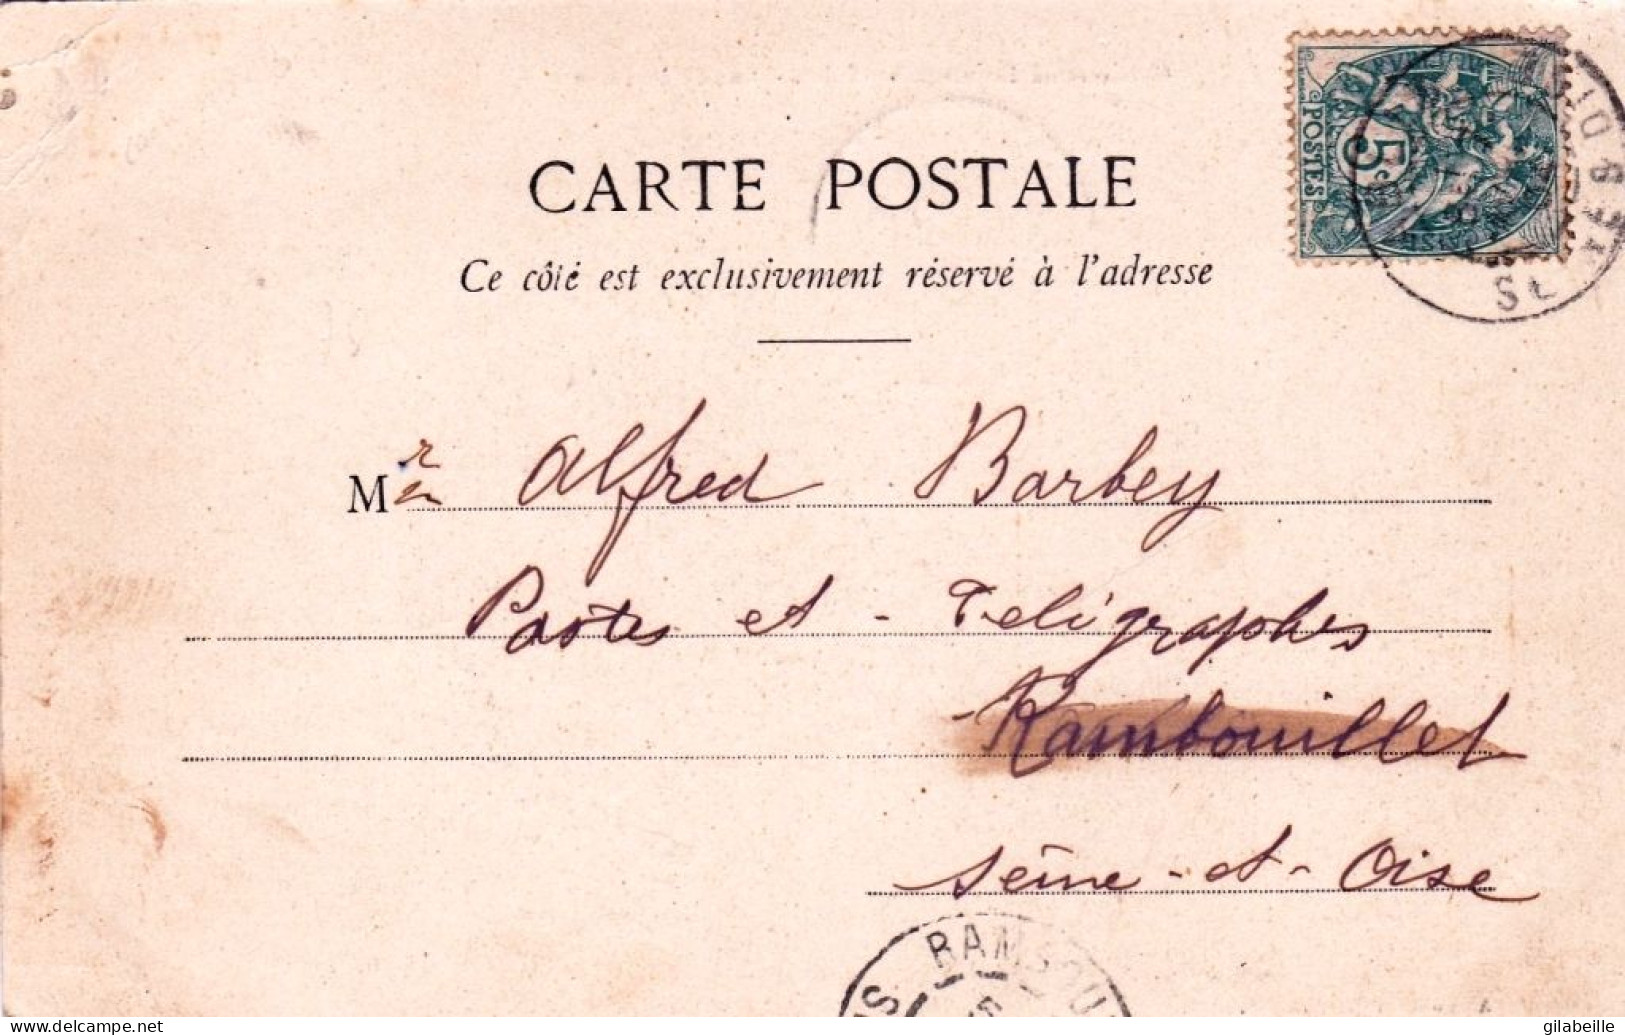 CARTE POSTALE
Ce côté est exclusivement réservé à l'adresse
POSTES
5c
Mr Alfred Barbey
Postes et - Télégraphes
- Rambouillet
Seine - et - Oise
RAMBOU
delcampe.net
gilabeille